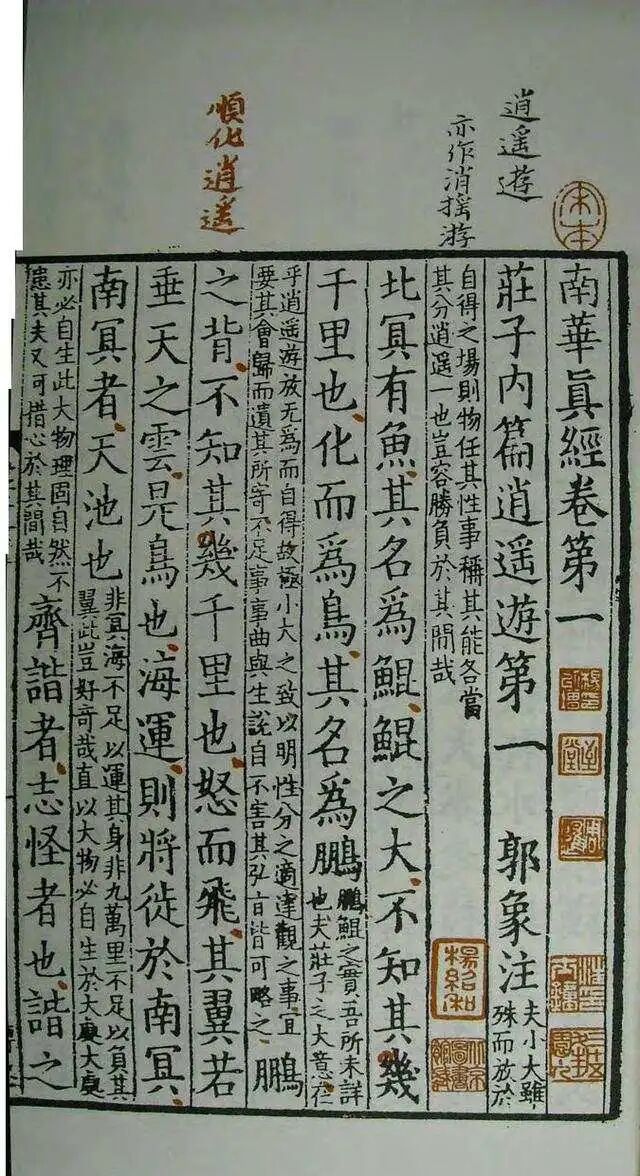 逍遥遊
亦作消摇游
順化逍遥
宋本
南華真經卷第一
莊子内篇逍遥遊第一 郭象注 夫小大雖
殊而放於
自得之場則物任其性事稱其能各當
其分逍遥一也豈容勝負於其間哉
楊紹和
北冥有魚其名爲鯤鯤之大不知其幾
千里也化而爲鳥其名爲鵬 鵬鯤之實吾所未詳
也夫莊子之大意在
乎逍遥遊放无爲而自得故極小大之致以明性分之適達觀之事宜
要其會歸而遺其所寄不足事事曲與生說自不害其弘旨皆可略之 鵬
之背不知其幾千里也怒而飛其翼若
垂天之雲是鳥也海運則將徙於南冥
南冥者天池也 非冥海不足以運其身非九萬里不足以負其
翼此豈好奇哉直以大物必自生於大處大處
亦必自生此大物理固自然不
患其失又何措心於其間哉 齊諧者志怪者也諧之